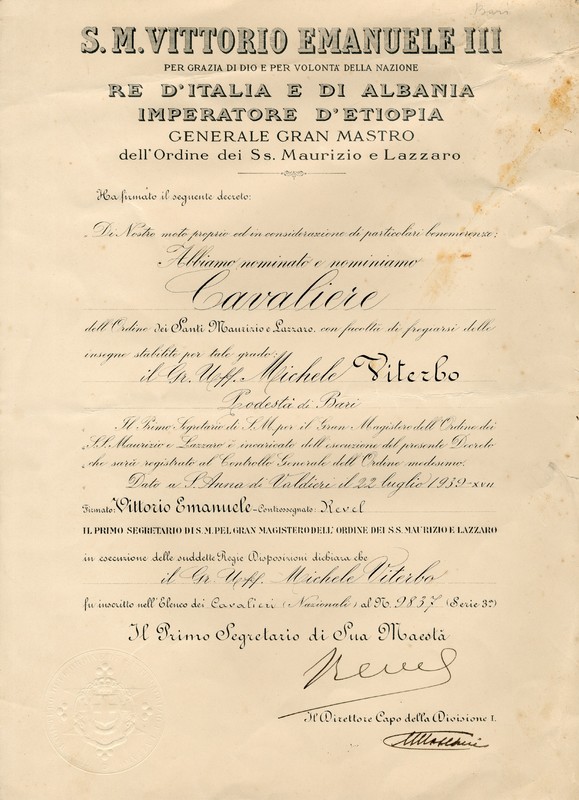 Bari
S. M. VITTORIO EMANUELE III
PER GRAZIA DI DIO E PER VOLONTÀ DELLA NAZIONE
RE D'ITALIA E DI ALBANIA
IMPERATORE D'ETIOPIA
GENERALE GRAN MASTRO
dell'Ordine dei Ss. Maurizio e Lazzaro
Ha firmato il seguente decreto:
Di Nostro moto proprio ed in considerazione di particolari benemerenze;
Abbiamo nominato e nominiamo
Cavaliere
dell'Ordine dei Santi Maurizio e Lazzaro, con facoltà di fregiarsi delle
insegne stabilite per tale grado:
il Gr. Uff. Michele Viterbo
Podestà di Bari
Il Primo Segretario di S.M. per il Gran Magistero dell'Ordine dei
S.S. Maurizio e Lazzaro è incaricato dell'esecuzione del presente Decreto
che sarà registrato al Controllo Generale dell'Ordine medesimo.
Dato a S. Anna di Valdieri il 22 luglio 1939-XVII
Firmato: Vittorio Emanuele - Controssegnato: Revel
IL PRIMO SEGRETARIO DI S. M. PEL GRAN MAGISTERO DELL'ORDINE DEI S S. MAURIZIO E LAZZARO
in esecuzione delle suddette Regie Disposizioni dichiara che
il Gr. Uff. Michele Viterbo
fu inscritto nell'Elenco dei Cavalieri (Nazionali) al N. 9837 (Serie 3ª)
Il Primo Segretario di Sua Maestà
Revel
Il Direttore Capo della Divisione I.